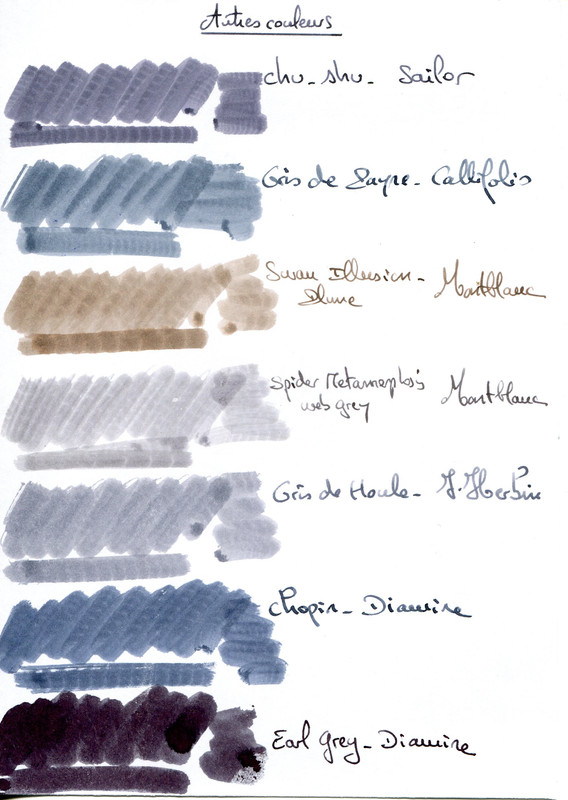 Autres couleurs
chu-shu- Sailor
Gris de Payne- Callifolio
Swan Illusion- Montblanc
Plume
Spider Metamorphosis Montblanc
web grey
Gris de Houle- J. Herbin
Chopin- Diamine
Earl Grey- Diamine